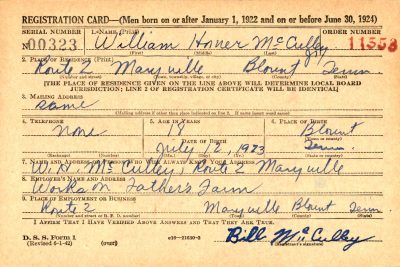 REGISTRATION CARD—(Men born on or after January 1, 1922 and on or before June 30, 1924)
SERIAL NUMBER 1. NAME (Print) ORDER NUMBER
N00323 William Homer McCulley 11553
(First) (Middle) (Last)
2. PLACE OF RESIDENCE (Print)
Route 2 Maryville Blount Tenn.
(Number and street) (Town, township, village, or city) (County) (State)
[THE PLACE OF RESIDENCE GIVEN ON THE LINE ABOVE WILL DETERMINE LOCAL BOARD
JURISDICTION; LINE 2 OF REGISTRATION CERTIFICATE WILL BE IDENTICAL]
3. MAILING ADDRESS
same
(Mailing address if other than place indicated on line 2. If same insert word same)
4. TELEPHONE 5. AGE IN YEARS 6. PLACE OF BIRTH
None 18 Blount
DATE OF BIRTH (Town or county)
July 12, 1923 Tenn.
(Exchange) (Number) (Mo.) (Day) (Yr.) (State or country)
7. NAME AND ADDRESS OF PERSON WHO WILL ALWAYS KNOW YOUR ADDRESS
W. H. McCulley, Route 2 Maryville
8. EMPLOYER'S NAME AND ADDRESS
Works on Father's Farm
9. PLACE OF EMPLOYMENT OR BUSINESS
Route 2 Maryville Blount Tenn.
(Number and street or R. F. D. number) (Town) (County) (State)
I AFFIRM THAT I HAVE VERIFIED ABOVE ANSWERS AND THAT THEY ARE TRUE.
D. S. S. Form 1
(Revised 6-1-42) (over) 16—21630-2 Bill McCulley
(Registrant's signature)